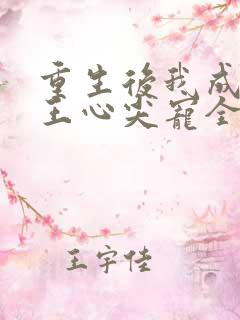 重生後我成
王心尖寵全
王宇佳